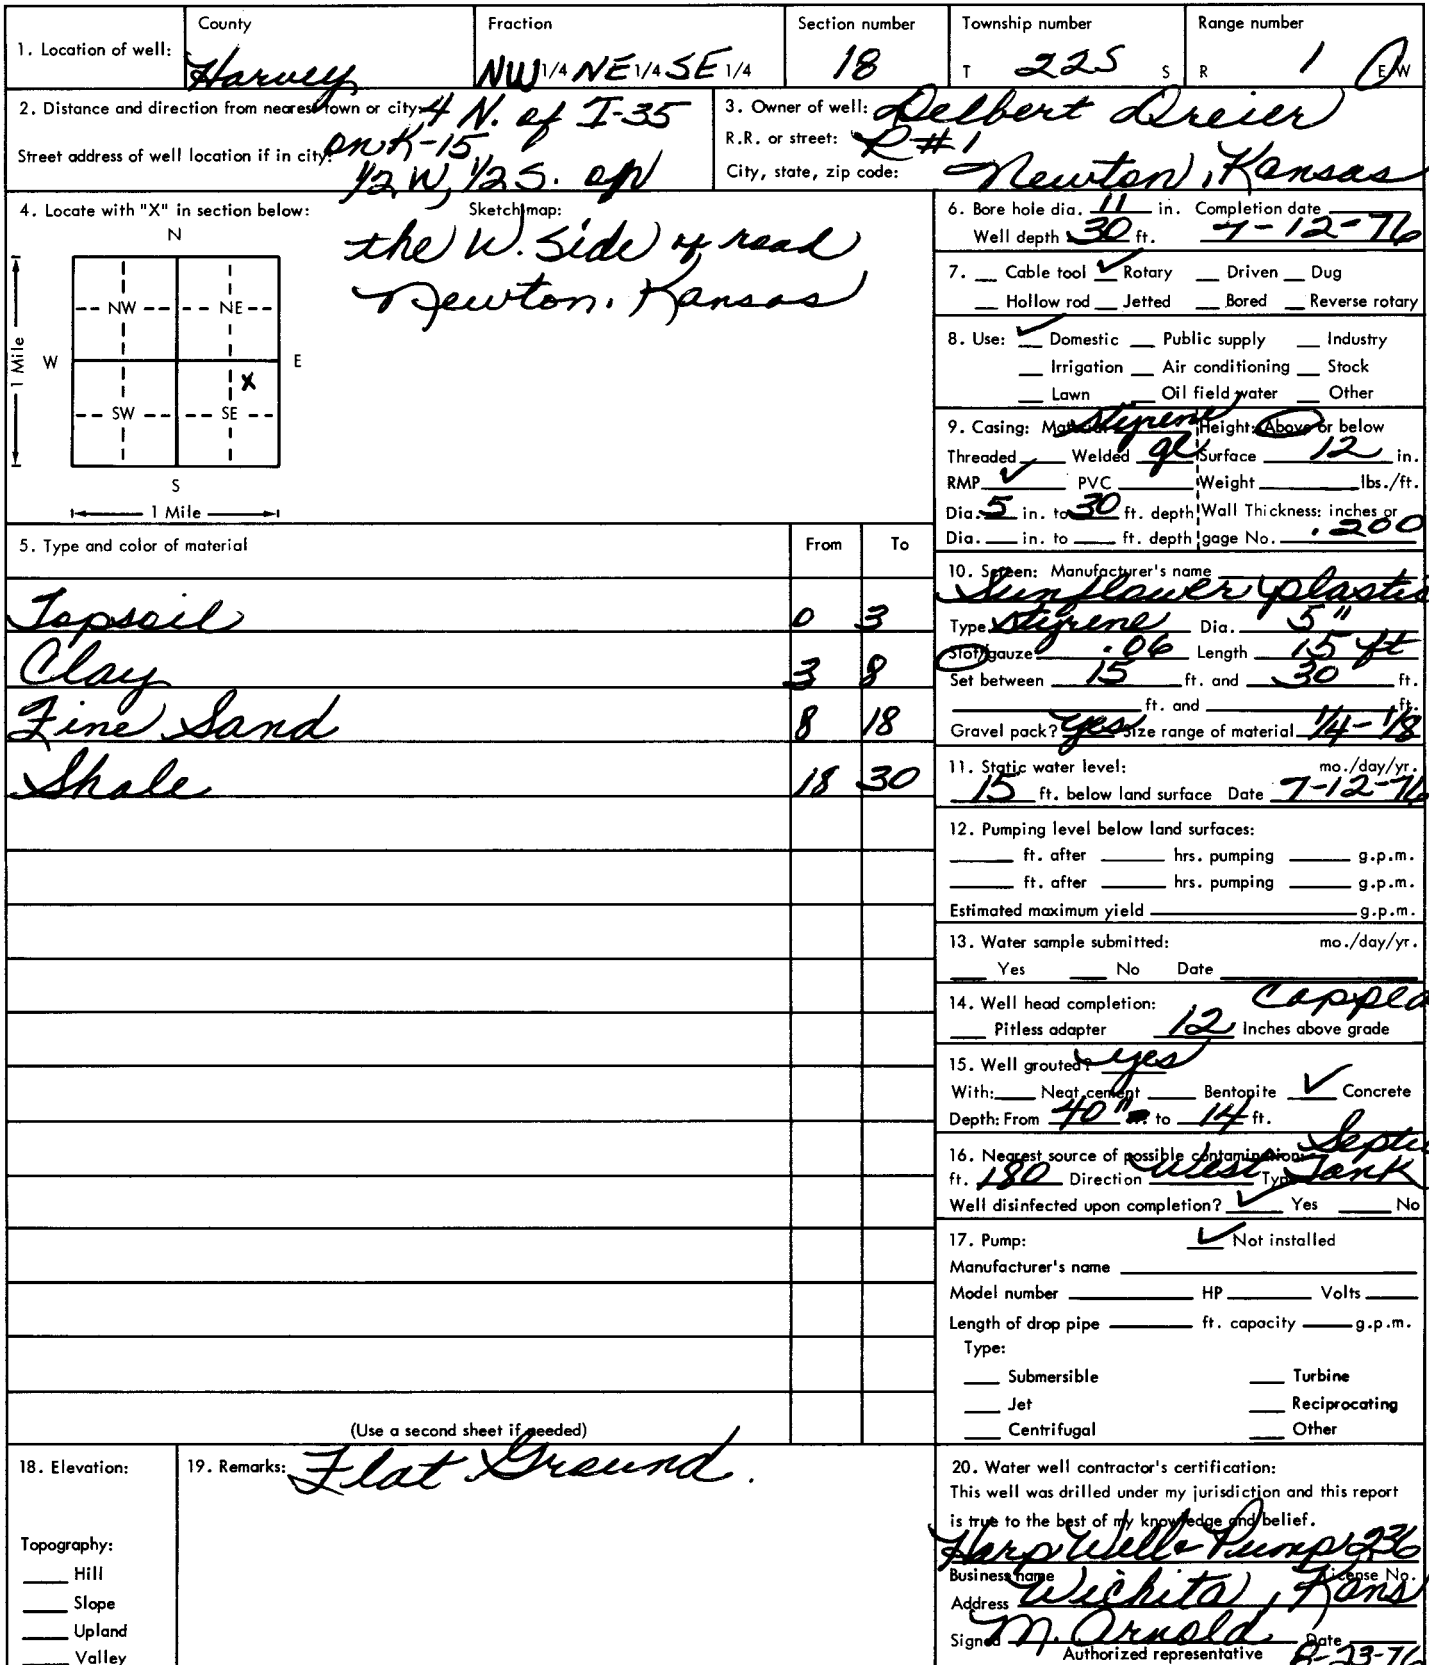 1. Location of well: County Harvey Fraction NW 1/4 NE 1/4 SE 1/4 Section number 18 Township number T 22S S Range number R 1 E/W
2. Distance and direction from nearest town or city: 4 N. of I-35
on K-15,
Street address of well location if in city:
1/2 W, 1/2 S. on
3. Owner of well: Delbert Dreier
R.R. or street: R#1
City, state, zip code: Newton, Kansas
4. Locate with "X" in section below:
Sketch map:
the W. Side of road
Newton, Kansas
N
NW NE
W E
X
SW SE
S
1 Mile
1 Mile
5. Type and color of material From To
Topsoil 0 3
Clay 3 8
Fine Sand 8 18
Shale 18 30
(Use a second sheet if needed)
6. Bore hole dia. 11 in. Completion date
Well depth 30 ft. 7-12-76
7. Cable tool ✓ Rotary Driven Dug
Hollow rod Jetted Bored Reverse rotary
8. Use: ✓ Domestic Public supply Industry
Irrigation Air conditioning Stock
Lawn Oil field water Other
9. Casing: Material styrene Height: Above or below
Threaded Welded gl Surface 12 in.
RMP ✓ PVC Weight lbs./ft.
Dia. 5 in. to 30 ft. depth Wall Thickness: inches or
Dia. in. to ft. depth gage No. .200
10. Screen: Manufacturer's name
Sunflower plastic
Type Styrene Dia. 5"
Slot/gauze .06 Length 15 ft
Set between 15 ft. and 30 ft.
ft. and ft.
Gravel pack? yes Size range of material 1/4-1/8
11. Static water level: mo./day/yr.
15 ft. below land surface Date 7-12-76
12. Pumping level below land surfaces:
ft. after hrs. pumping g.p.m.
ft. after hrs. pumping g.p.m.
Estimated maximum yield g.p.m.
13. Water sample submitted: mo./day/yr.
Yes No Date
14. Well head completion: Capped
Pitless adapter 12 Inches above grade
15. Well grouted? yes
With: Neat cement Bentonite ✓ Concrete
Depth: From 40" to 14 ft.
16. Nearest source of possible contamination: Septic
ft. 180 Direction West Type Tank
Well disinfected upon completion? ✓ Yes No
17. Pump: ✓ Not installed
Manufacturer's name
Model number HP Volts
Length of drop pipe ft. capacity g.p.m.
Type:
Submersible Turbine
Jet Reciprocating
Centrifugal Other
18. Elevation:
Topography:
Hill
Slope
Upland
Valley
19. Remarks: Flat Ground.
20. Water well contractor's certification:
This well was drilled under my jurisdiction and this report
is true to the best of my knowledge and belief.
Harp Well & Pump 236
Business name License No.
Address Wichita, Kans
Signed M. Arnold Date
Authorized representative 8-23-76